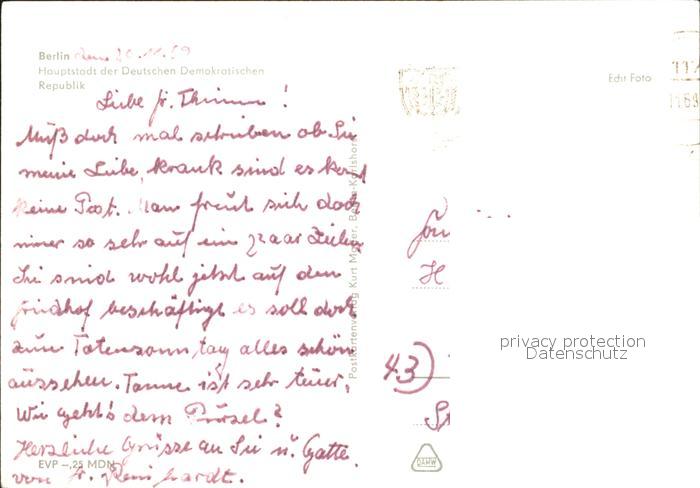 Berlin den 20.11.69
Hauptstadt der Deutschen Demokratischen
Republik
Echt Foto
Liebe fr. Thimm!
Muß doch mal schreiben ob Sie
meine Liebe, krank sind es kommt
keine Post. Man freut sich doch
immer so sehr auf ein paar Zeilen
Sie sind wohl jetzt auf den
Friedhof beschäftigt es soll doch
zum Totensonntag alles schön
aussehen. Tanne ist sehr teuer,
Wie geht's dem
Herzliche Grüsse an Sie u. Gatte.
von fr. Reinhardt.
EVP –,25 MDN
Postkartenverlag Kurt Mader, Berlin-Karlshorst
43)
privacy protection
Datenschutz
DAMW